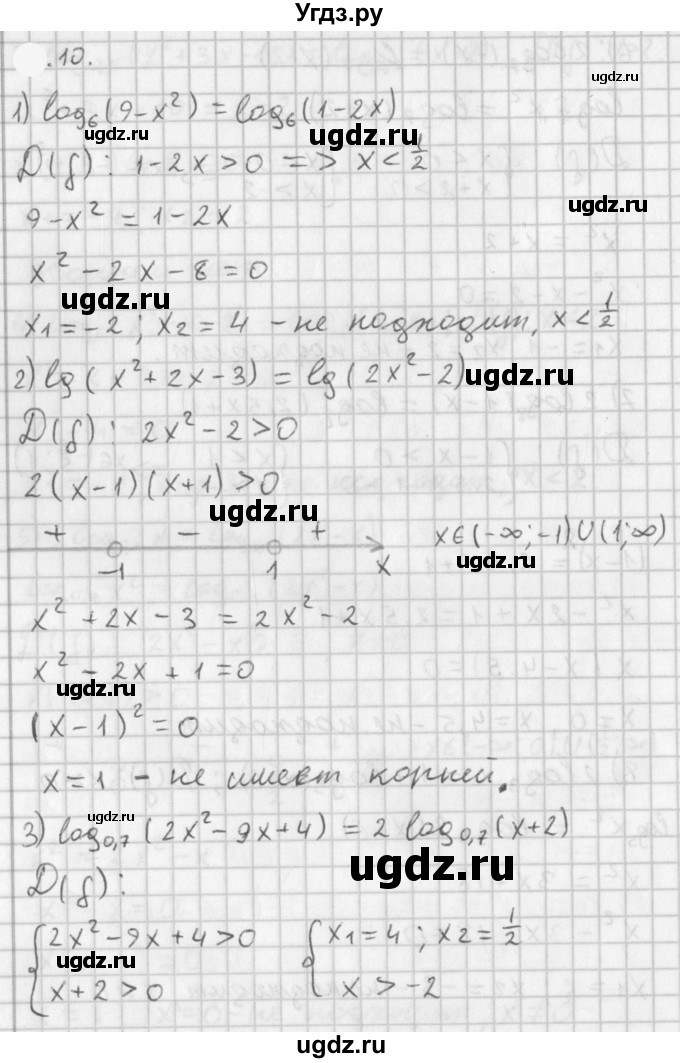 Угдз.ру
.10.
ugdz.ru
1) log₆(9-x²) = log₆(1-2x)
ugdz.ru
D(f): 1-2x>0 => x<1/2
ugdz.ru
9-x² = 1-2x
x² - 2x - 8 = 0
ugdz.ru
x₁ = -2; x₂ = 4 - не подходит, x<1/2
2) lg(x²+2x-3) = lg(2x²-2)
ugdz.ru
D(f): 2x²-2>0
2(x-1)(x+1)>0
ugdz.ru
+ - +
-1 1 x
x∈(-∞;-1)∪(1;∞)
ugdz.ru
x²+2x-3 = 2x²-2
x²-2x+1=0
ugdz.ru
(x-1)²=0
x=1 - не имеет корней.
ugdz.ru
3) log₀,₇(2x²-9x+4) = 2 log₀,₇(x+2)
ugdz.ru
D(f):
{2x²-9x+4>0 {x₁=4; x₂=1/2
ugdz.ru
x+2>0 x>-2
ugdz.ru